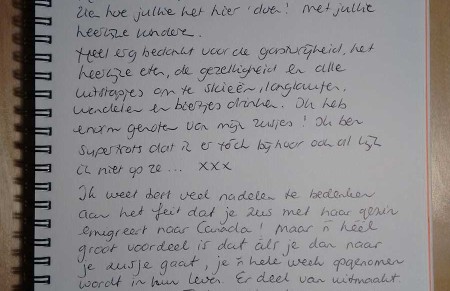 zien hoe jullie het hier 'doen'! Met jullie
heerlijke kinderen.
Heel erg bedankt voor de gastvrijheid, het
heerlijke eten, de gezelligheid en alle
uitstapjes om te skieën, langlaufen,
wandelen en biertjes drinken. Ik heb
enorm genoten van mijn zusjes! Ik ben
supertrots dat ik er tóch bij hoor ook al lijk
ik niet op ze... xxx
Ik weet best veel nadelen te bedenken
aan het feit dat je zus met haar gezin
emigreert naar Canada! Maar 'n héél
groot voordeel is dat àls je dan naar
je zusje gaat, je 'n hele week opgenomen
wordt in hun leven. Er deel van uitmaakt.